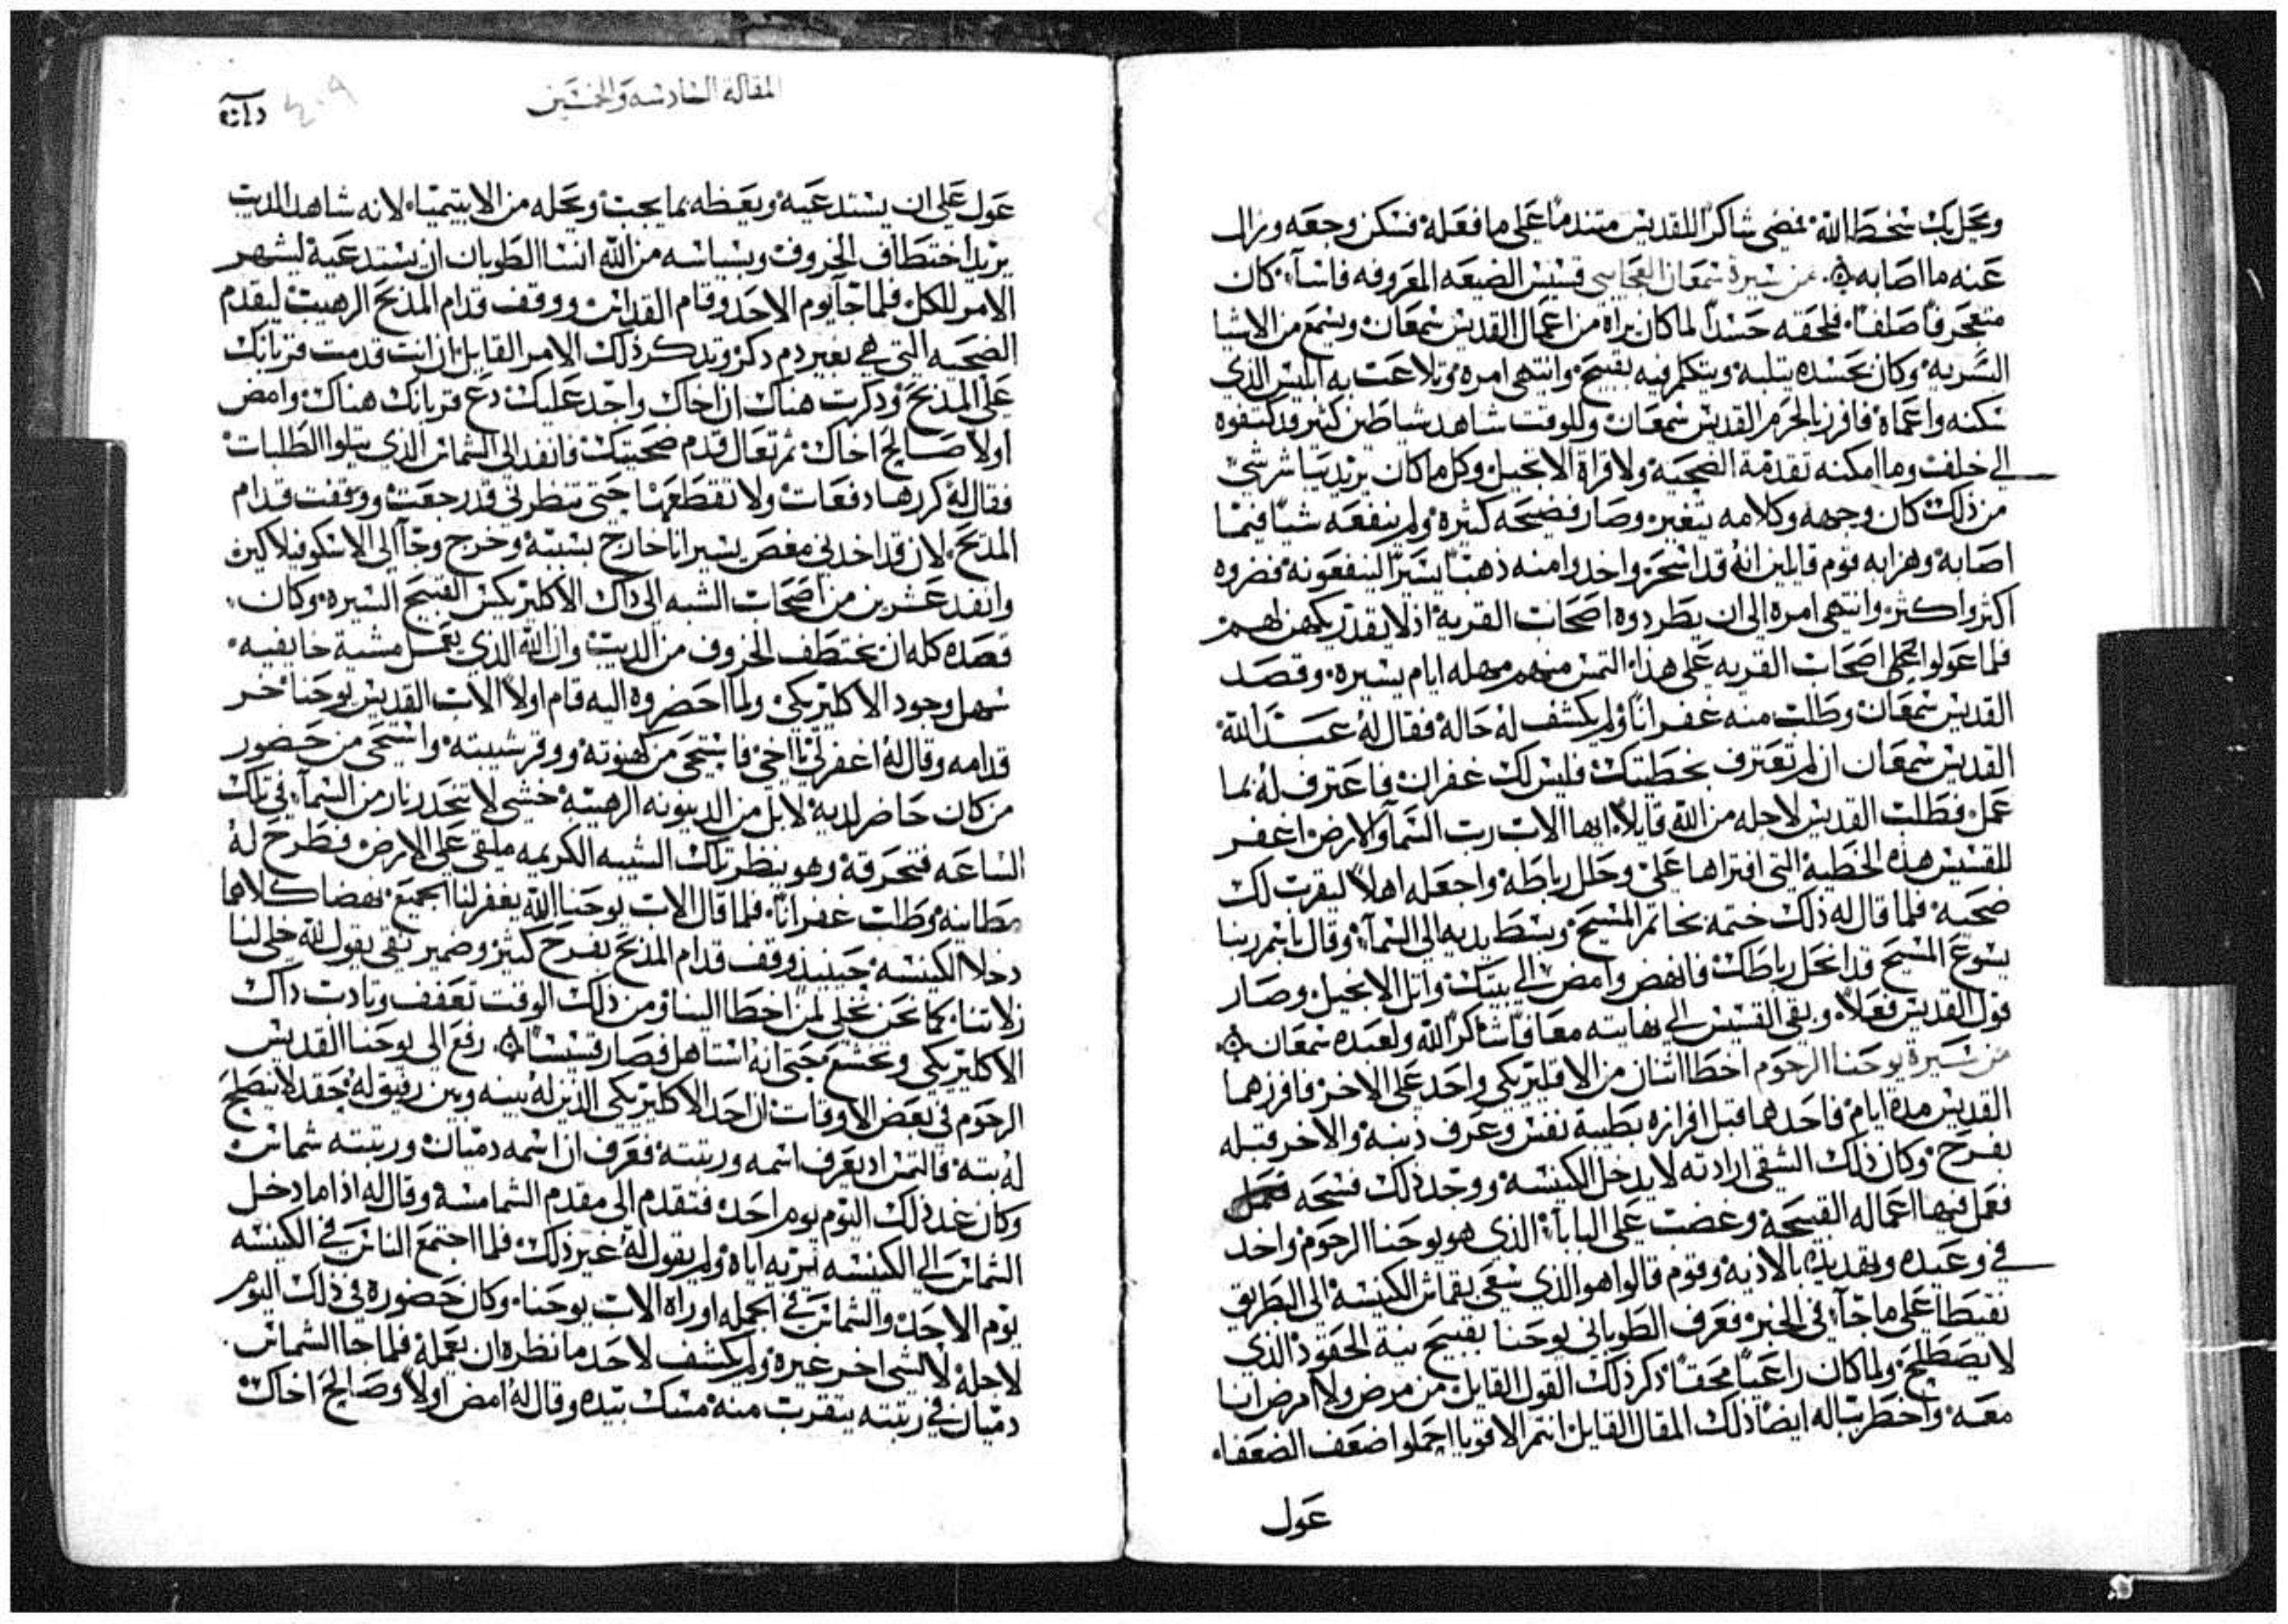 ويحل بك سخط الله فمضى شاكرا للقديس متندما على ما فعله فسكن وجعه وزال
عنه ما اصابه من سيرة سمعان العجايبي قسيس الضيعه المعروفه فاسا كان
متعجرفا صلفا فلحقه حسدا لما كان يراه من اعمال القديس سمعان ويسمع من الاشيا
السريه وكان بحسده يتلبه ويتكلم فيه بقبيح وانتهى امره وتلاعب به ابليس الذي
سكنه واعماه فافرز بالحرم القديس سمعان وللوقت شاهد شياطين كثير قد كتفوه
الى خلف وما امكنه تقدمة الضحيه ولا قراة الانجيل وكل ما كان يريد يباشر شي
من ذلك كان وجهه وكلامه يتغير وصار فضيحه كثيره ولم ينفعه شيا فيما
اصابه وهزا به قوم قايلين انه قد اسحر واخدوا منه ذهبا يسيرا لينفعونه فضروه
اكثر واكثر وانتهى امره الى ان يطردوه اصحاب القريه اذ لا يقدر يكهن لهم
فلما عولوا اصحاب القريه على هذا التمس منهم مهله ايام يسيره وقصد
القديس سمعان وطلب منه غفرانا ولم يكشف له حاله فقال له عبد الله
القديس سمعان ان لم تعترف بخطيتك فليس لك غفران فاعترف له بما
عمل فطلب القديس لاجله من الله قايلا ايها الاب رب السما والارض اغفر
للقسيس هذه الخطيه التي افتراها علي وحلل رباطه واجعله اهلا ليقرب لك
ضحيه فلما قال له ذلك ختمه بخاتم المسيح وبسط يديه الى السما وقال باسم ربنا
يسوع المسيح قد انحل رباطك فانهض وامض الى بيتك واتل الانجيل وصار
قول القديس فعلا وبقي القسيس الى نهايته معافا شاكرا لله ولعبده سمعان
من سيرة يوحنا الرحوم اخطا اثنان من الاقليريكي واحد على الاخر فافرزهما
القديس مدة ايام فاحدهما قبل افرازه بطيبة نفس وعرف ذنبه والاخر قبله
بفرح وكان ذلك الشقي ارادته لا يدخل الكنيسه ووجد ذلك فسحه
فعمل فيها اعماله القبيحه وغضب على البابا الذي هو يوحنا الرحوم واخد
في وعيده وتهديده بالاذيه وقوم قالوا هو الذي سعى بقماش الكنيسه الى البطريق
نقيطا على ما جا في الخبر فعرف الطوباني يوحنا بقبيح نية الحقود الذي
لا يصطلح ولما كان راعيا محقا ذكر ذلك القول القايل من مرض ولا امرض انا
معه واخطر بباله ايضا ذلك المقال القايل انتم الاقويا احملوا ضعف الضعفا
عول
المقالة السادسه والخمسين
٤٠٩
عول على ان يستدعيه ويعظه بما يجب ويحله من الابيتيميا لانه شاهد الديب
يريد اختطاف الخروف وبسياسه من الله انسا الطوبان ان يستدعيه ليشهر
الامر للكل فلما جا يوم الاحد وقام القداس ووقف قدام المذبح الرهيب ليقدم
الضحيه التي هي بغير دم ذكر وتدكر ذلك الامر القايل ان انت قدمت قربانك
على المذبح وذكرت هناك ان اخاك واجد عليك دع قربانك هناك وامض
اولا صالح اخاك ثم تعال قدم ضحيتك فانفد الى الشماس الذي يتلوا الطلبات
فقال له كررها دفعات ولا تقطعها حتى تنظرني قد رجعت ووقفت قدام
المذبح لان قد اخدني مغص يسير انا خارج بسببه وخرج وجا الى الاسكوفيلاكين
وانفد عشرين من اصحاب الشبه الى ذاك الاكليريكس القبيح السيره وكان
قصده كله ان يختطف الخروف من الديب وان الله الذي يعمل مشية خايفيه
سهل وجود الاكليريكي ولما احضروه اليه قام اولا الاب القديس يوحنا خر
قدامه وقال له اغفر لي يا اخي فاستحى من كهنوته ووقر شيبته واستحى من حضور
من كان حاضر لديه لا بل من الدينونه الرهيبه خشي لا تنحدر نار من السما في تلك
الساعه فتحرقه وهو ينظر تلك الشيبه الكريمه ملقى على الارض فطرح له
مطانيه وطلب غفرانا فلما قال الاب يوحنا الله يغفر لنا اجمع نهضا كلاهما
دخلا الكنيسه حينيذ وقف قدام المذبح بفرح كثير وضمير نقي يقول لله خلي لنا
زلاتنا كما نحن نخلي لمن اخطا الينا ومن ذلك الوقت تعفف وتادب ذاك
الاكليريكي وتخشع حتى انه استاهل فصار قسيسا رفع الى يوحنا القديس
الرحوم في بعض الاوقات ان احد الاكليريكي الذين له بينه وبين رفيق له حقد لا يصطلح
له بته فالتمس ان يعرف اسمه ورتبته فعرف ان اسمه دميان ورتبته شماس
وكان غد ذلك اليوم يوم احد فتقدم الى مقدم الشمامسه وقال له اذا ما دخل
الشماس الى الكنيسه تريه اياه ولم يقول له غير ذلك فلما اجتمع الناس في الكنيسه
يوم الاحد والشماس في الجمله اوراه الاب يوحنا وكان حضوره في ذلك اليوم
لاجله لا لشي اخر غيره ولم يكشف لاحد ما نظره ان يعمله فلما جا الشماس
دميان في رتبته يتقرب منه مسك بيده وقال له امض اولا وصالح اخاك